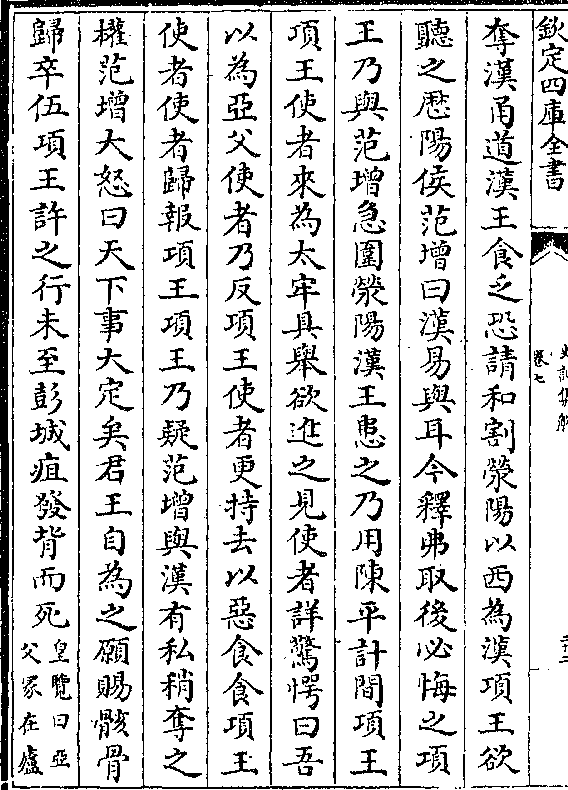 欽定四庫全書
史記集解
卷七
奪漢甬道漢王食乏恐請和割滎陽以西為漢項王欲
聽之厯陽侯范增曰漢易與耳今釋弗取後必悔之項
王乃與范增急圍滎陽漢王患之乃用陳平計間項王
項王使者來為太牢具舉欲進之見使者詳驚愕曰吾
以為亞父使者乃反項王使者更持去以惡食食項王
使者使者歸報項王項王乃疑范增與漢有私稍奪之
權范增大怒曰天下事大定矣君王自為之願賜骸骨
歸卒伍項王許之行未至彭城疽發背而死
皇覽曰亞
父冢在廬